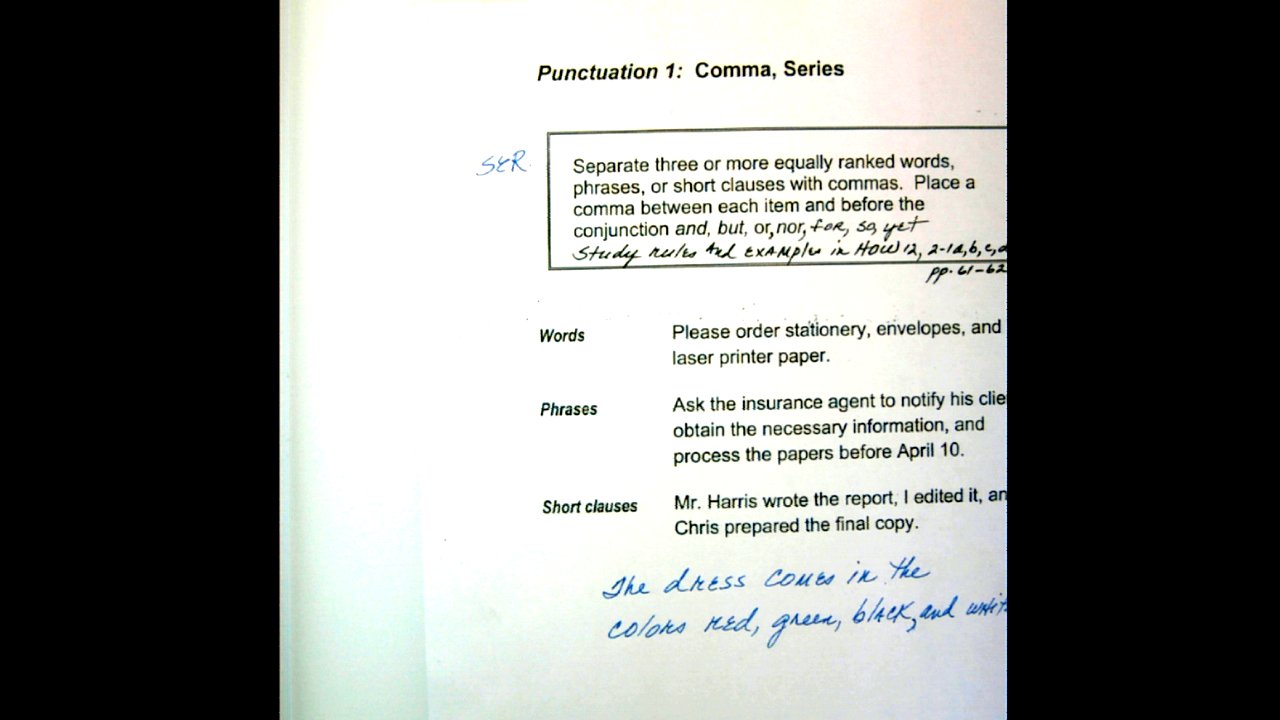 Punctuation 1: Comma, Series
SER
Separate three or more equally ranked words,
phrases, or short clauses with commas. Place a
comma between each item and before the
conjunction and, but, or, nor, for, so, yet
Study rules and examples in HOW 12, 2-1a,b,c,d
pp. 61-62
Words
Please order stationery, envelopes, and
laser printer paper.
Phrases
Ask the insurance agent to notify his clie
obtain the necessary information, and
process the papers before April 10.
Short clauses
Mr. Harris wrote the report, I edited it, an
Chris prepared the final copy.
The dress comes in the
colors red, green, black, and whit